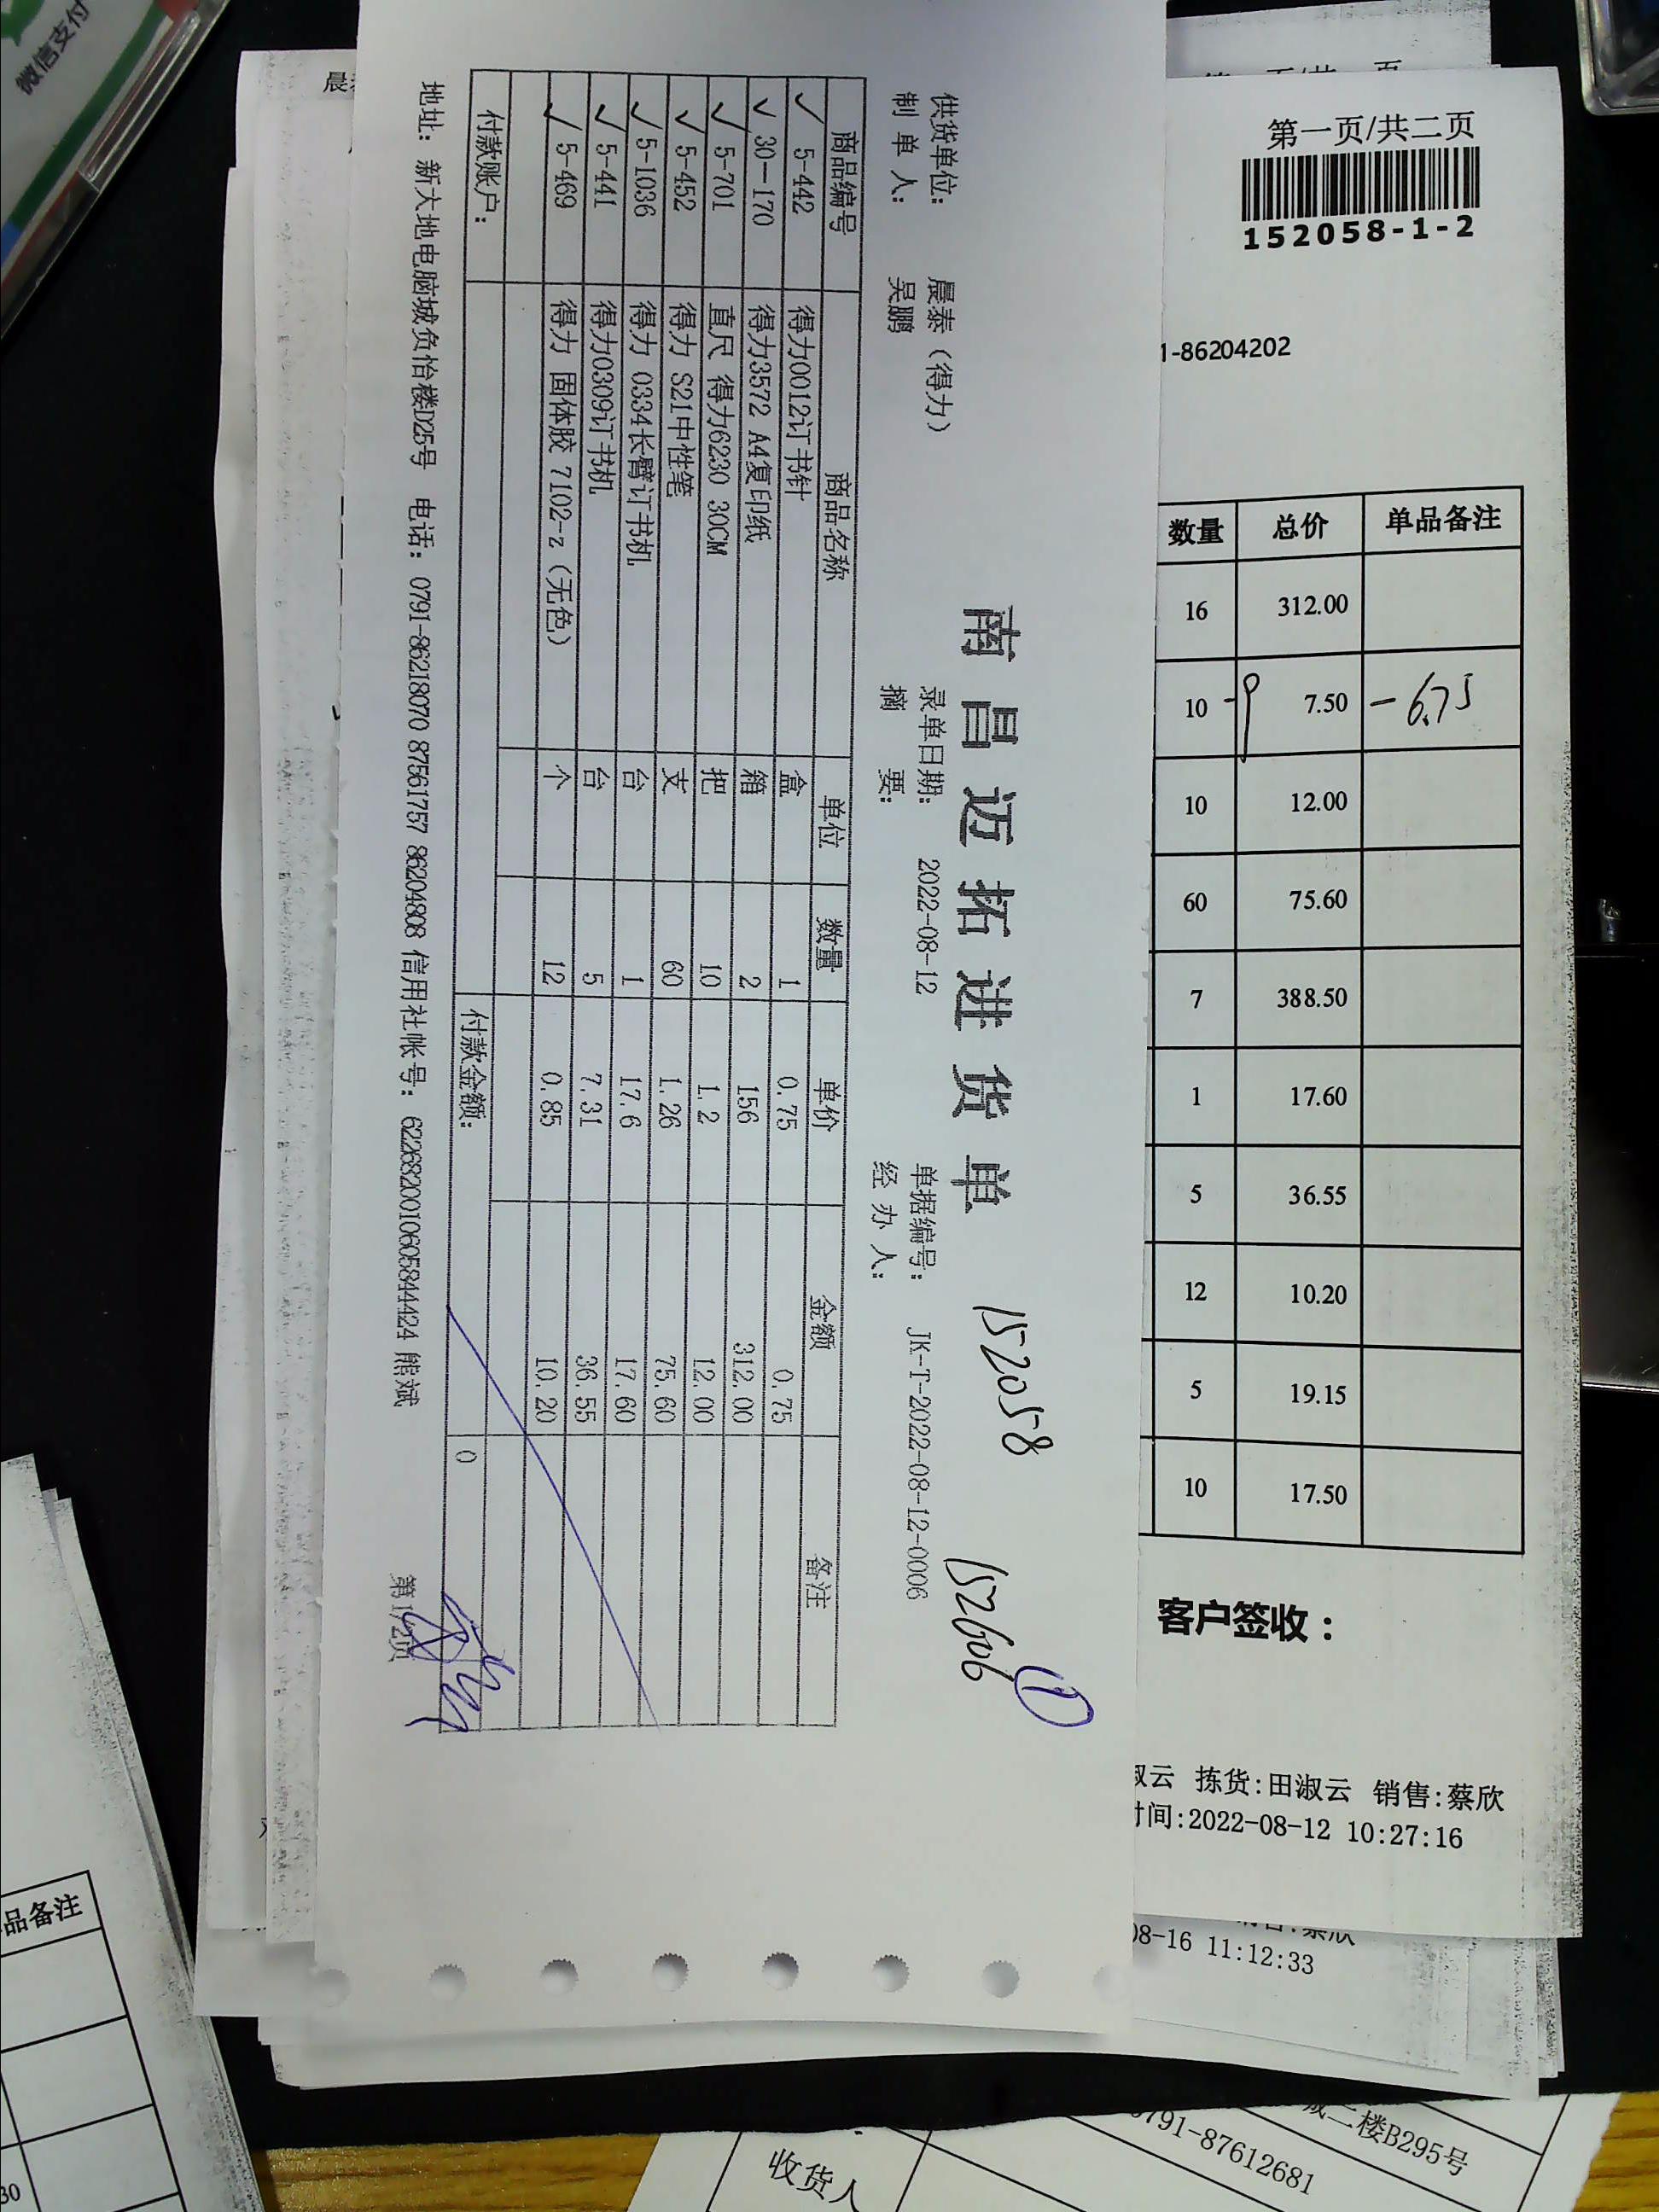 南昌迈拓进货单
152058 152606 ①
供货单位: 晨泰（得力） 录单日期: 2022-08-12 单据编号: JK-T-2022-08-12-0006
制单人: 吴鹏 摘要: 经办人:
商品编号 商品名称 单位 数量 单价 金额 备注
✓ 5-442 得力0012订书针 盒 1 0.75 0.75
✓ 30-170 得力3572 A4复印纸 箱 2 156 312.00
✓ 5-701 直尺 得力6230 30CM 把 10 1.2 12.00
✓ 5-452 得力 S21中性笔 支 60 1.26 75.60
✓ 5-1036 得力 0334长臂订书机 台 1 17.6 17.60
✓ 5-441 得力0309订书机 台 5 7.31 36.55
✓ 5-469 得力 固体胶 7102-z（无色） 个 12 0.85 10.20
付款账户: 付款金额: 0
地址: 新大地电脑城负怡楼D25号 电话: 0791-86218070 87561757 86204808 信用社帐号: 6226820010605844424 熊斌 第1/2页
第一页/共二页
152058-1-2
1-86204202
数量 总价 单品备注
16 312.00
10 -9 7.50 -6.75
10 12.00
60 75.60
7 388.50
1 17.60
5 36.55
12 10.20
5 19.15
10 17.50
客户签收：
淑云 拣货:田淑云 销售:蔡欣
时间:2022-08-12 10:27:16
08-16 11:12:33
微信支付
品备注
30
城二楼B295号
0791-87612681
收货人